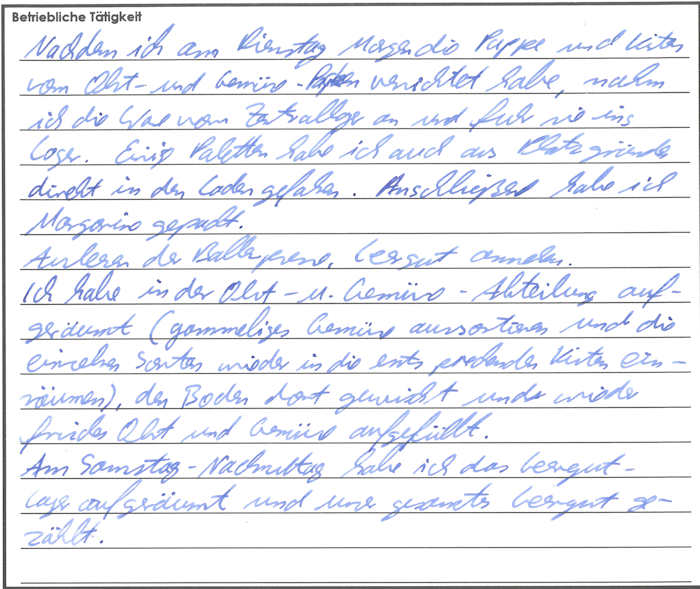 Betriebliche Tätigkeit
Nachdem ich am Dienstag Morgen die Pappe und Kisten
vom Obst- und Gemüse- verrichtet habe, nahm
ich die Ware vom Zentrallager an und fuhr sie ins
Lager. Einige Paletten habe ich auch aus Platzgründen
direkt in den Laden gefahren. Anschließend habe ich
Margarine gepackt.
Anlernen der Ballenpresse, Leergut annehmen.
Ich habe in der Obst- u. Gemüse-Abteilung auf-
geräumt (gammeliges Gemüse aussortieren und die
einzelnen Sorten wieder in die entsprechenden Kisten ein-
räumen), den Boden dort gewischt und wieder
frisches Obst und Gemüse aufgefüllt.
Am Samstag-Nachmittag habe ich das Leergut-
Lager aufgeräumt und unser gesamtes Leergut ge-
zählt.